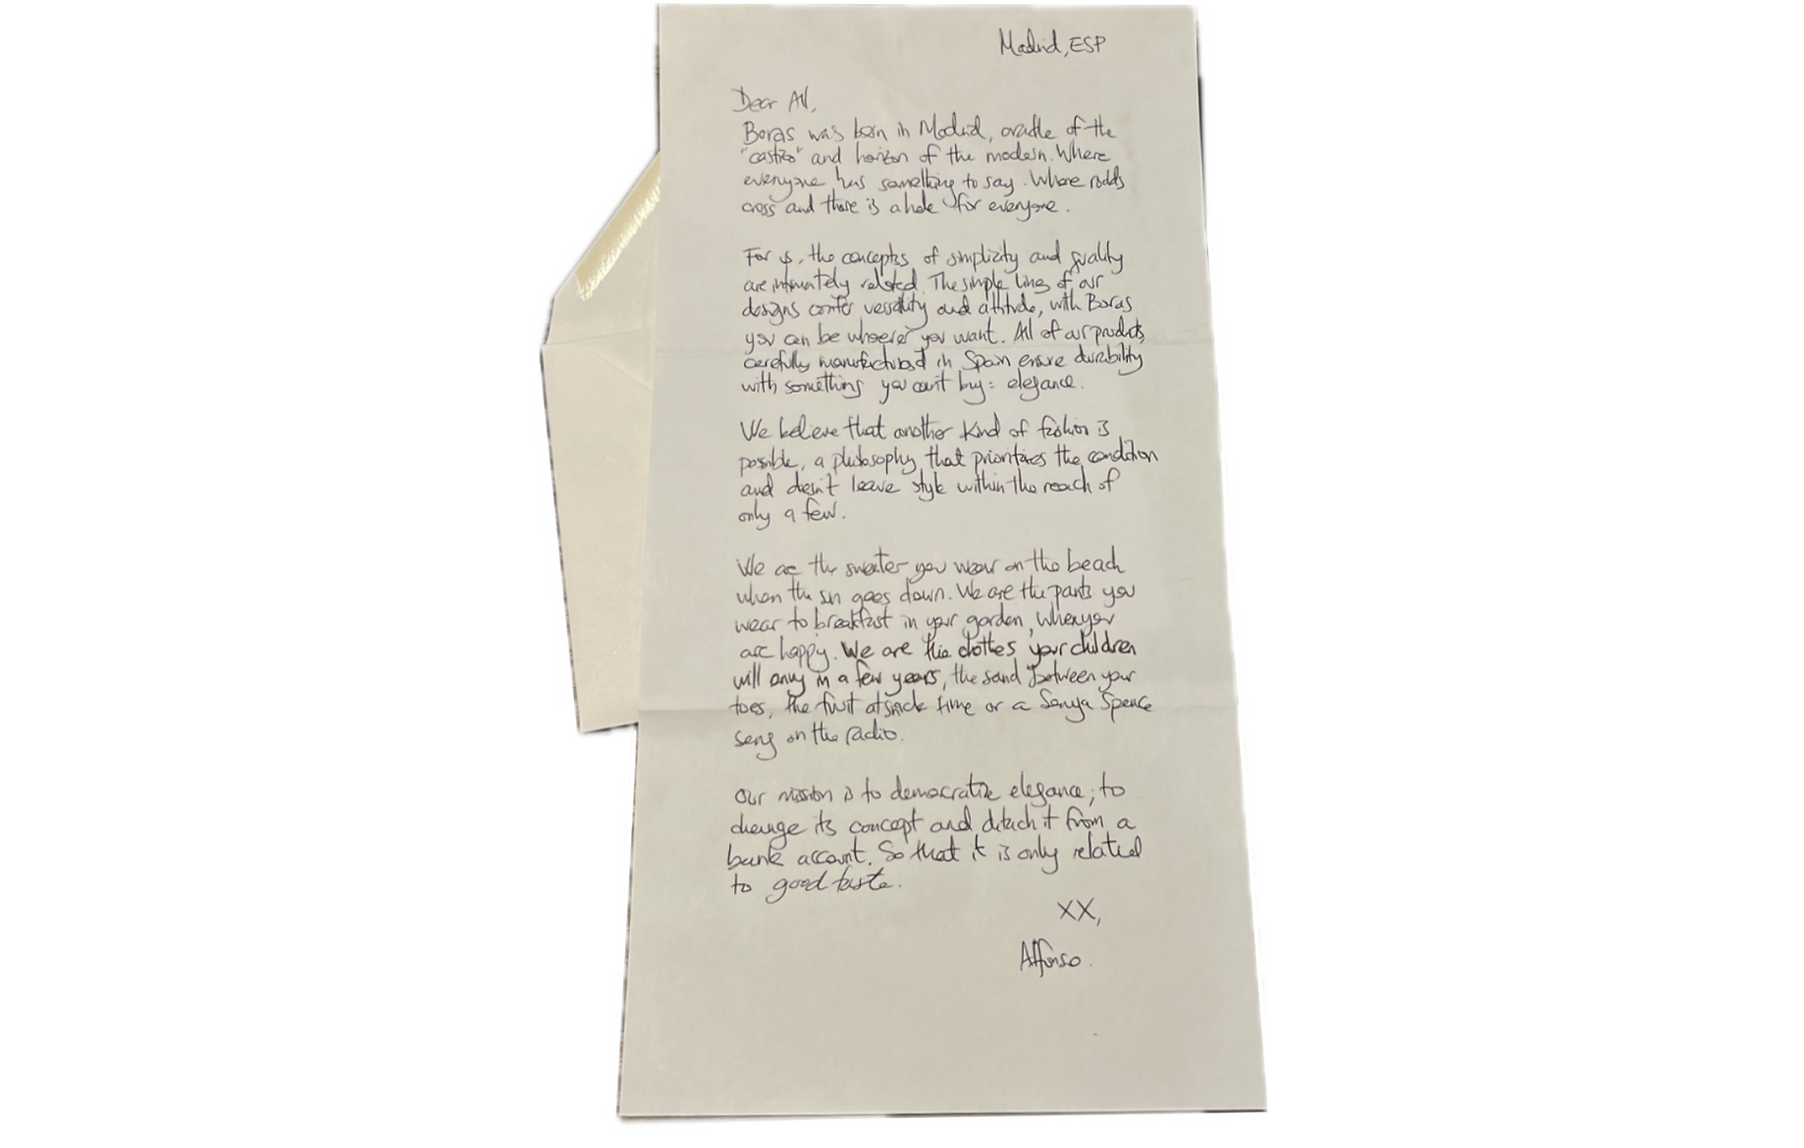 Madrid, ESP
Dear All,
Boras was born in Madrid, cradle of the
"castizo" and horizon of the modern. Where
everyone has something to say. Where roads
cross and there is a hole for everyone.
For us, the concepts of simplicity and quality
are intimately related. The simple lines of our
designs confer versatility and attitude, with Boras
you can be whoever you want. All of our products,
carefully manufactured in Spain ensure durability
with something you can't buy: elegance.
We believe that another kind of fashion is
possible, a philosophy that prioritizes the condition
and doesn't leave style within the reach of
only a few.
We are the sweater you wear on the beach
when the sun goes down. We are the pants you
wear to breakfast in your garden, when you
are happy. We are the clothes your children
will envy in a few years, the sand between your
toes, the fruit at snack time or a Sonya Spence
song on the radio.
Our mission is to democratize elegance; to
change its concept and detach it from a
bank account. So that it is only related
to good taste.
XX,
Alfonso.